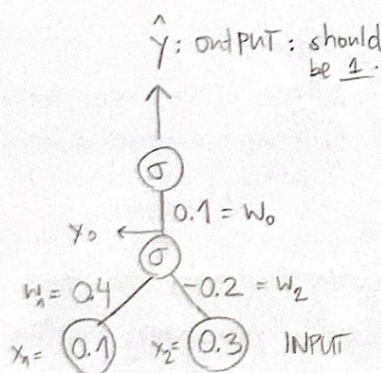 ŷ: OUTPUT: should
be 1.
σ
0.1 = W₀
x₀
σ
W₁ = 0.4
-0.2 = W₂
x₁ = 0.1
x₂ = 0.3
INPUT